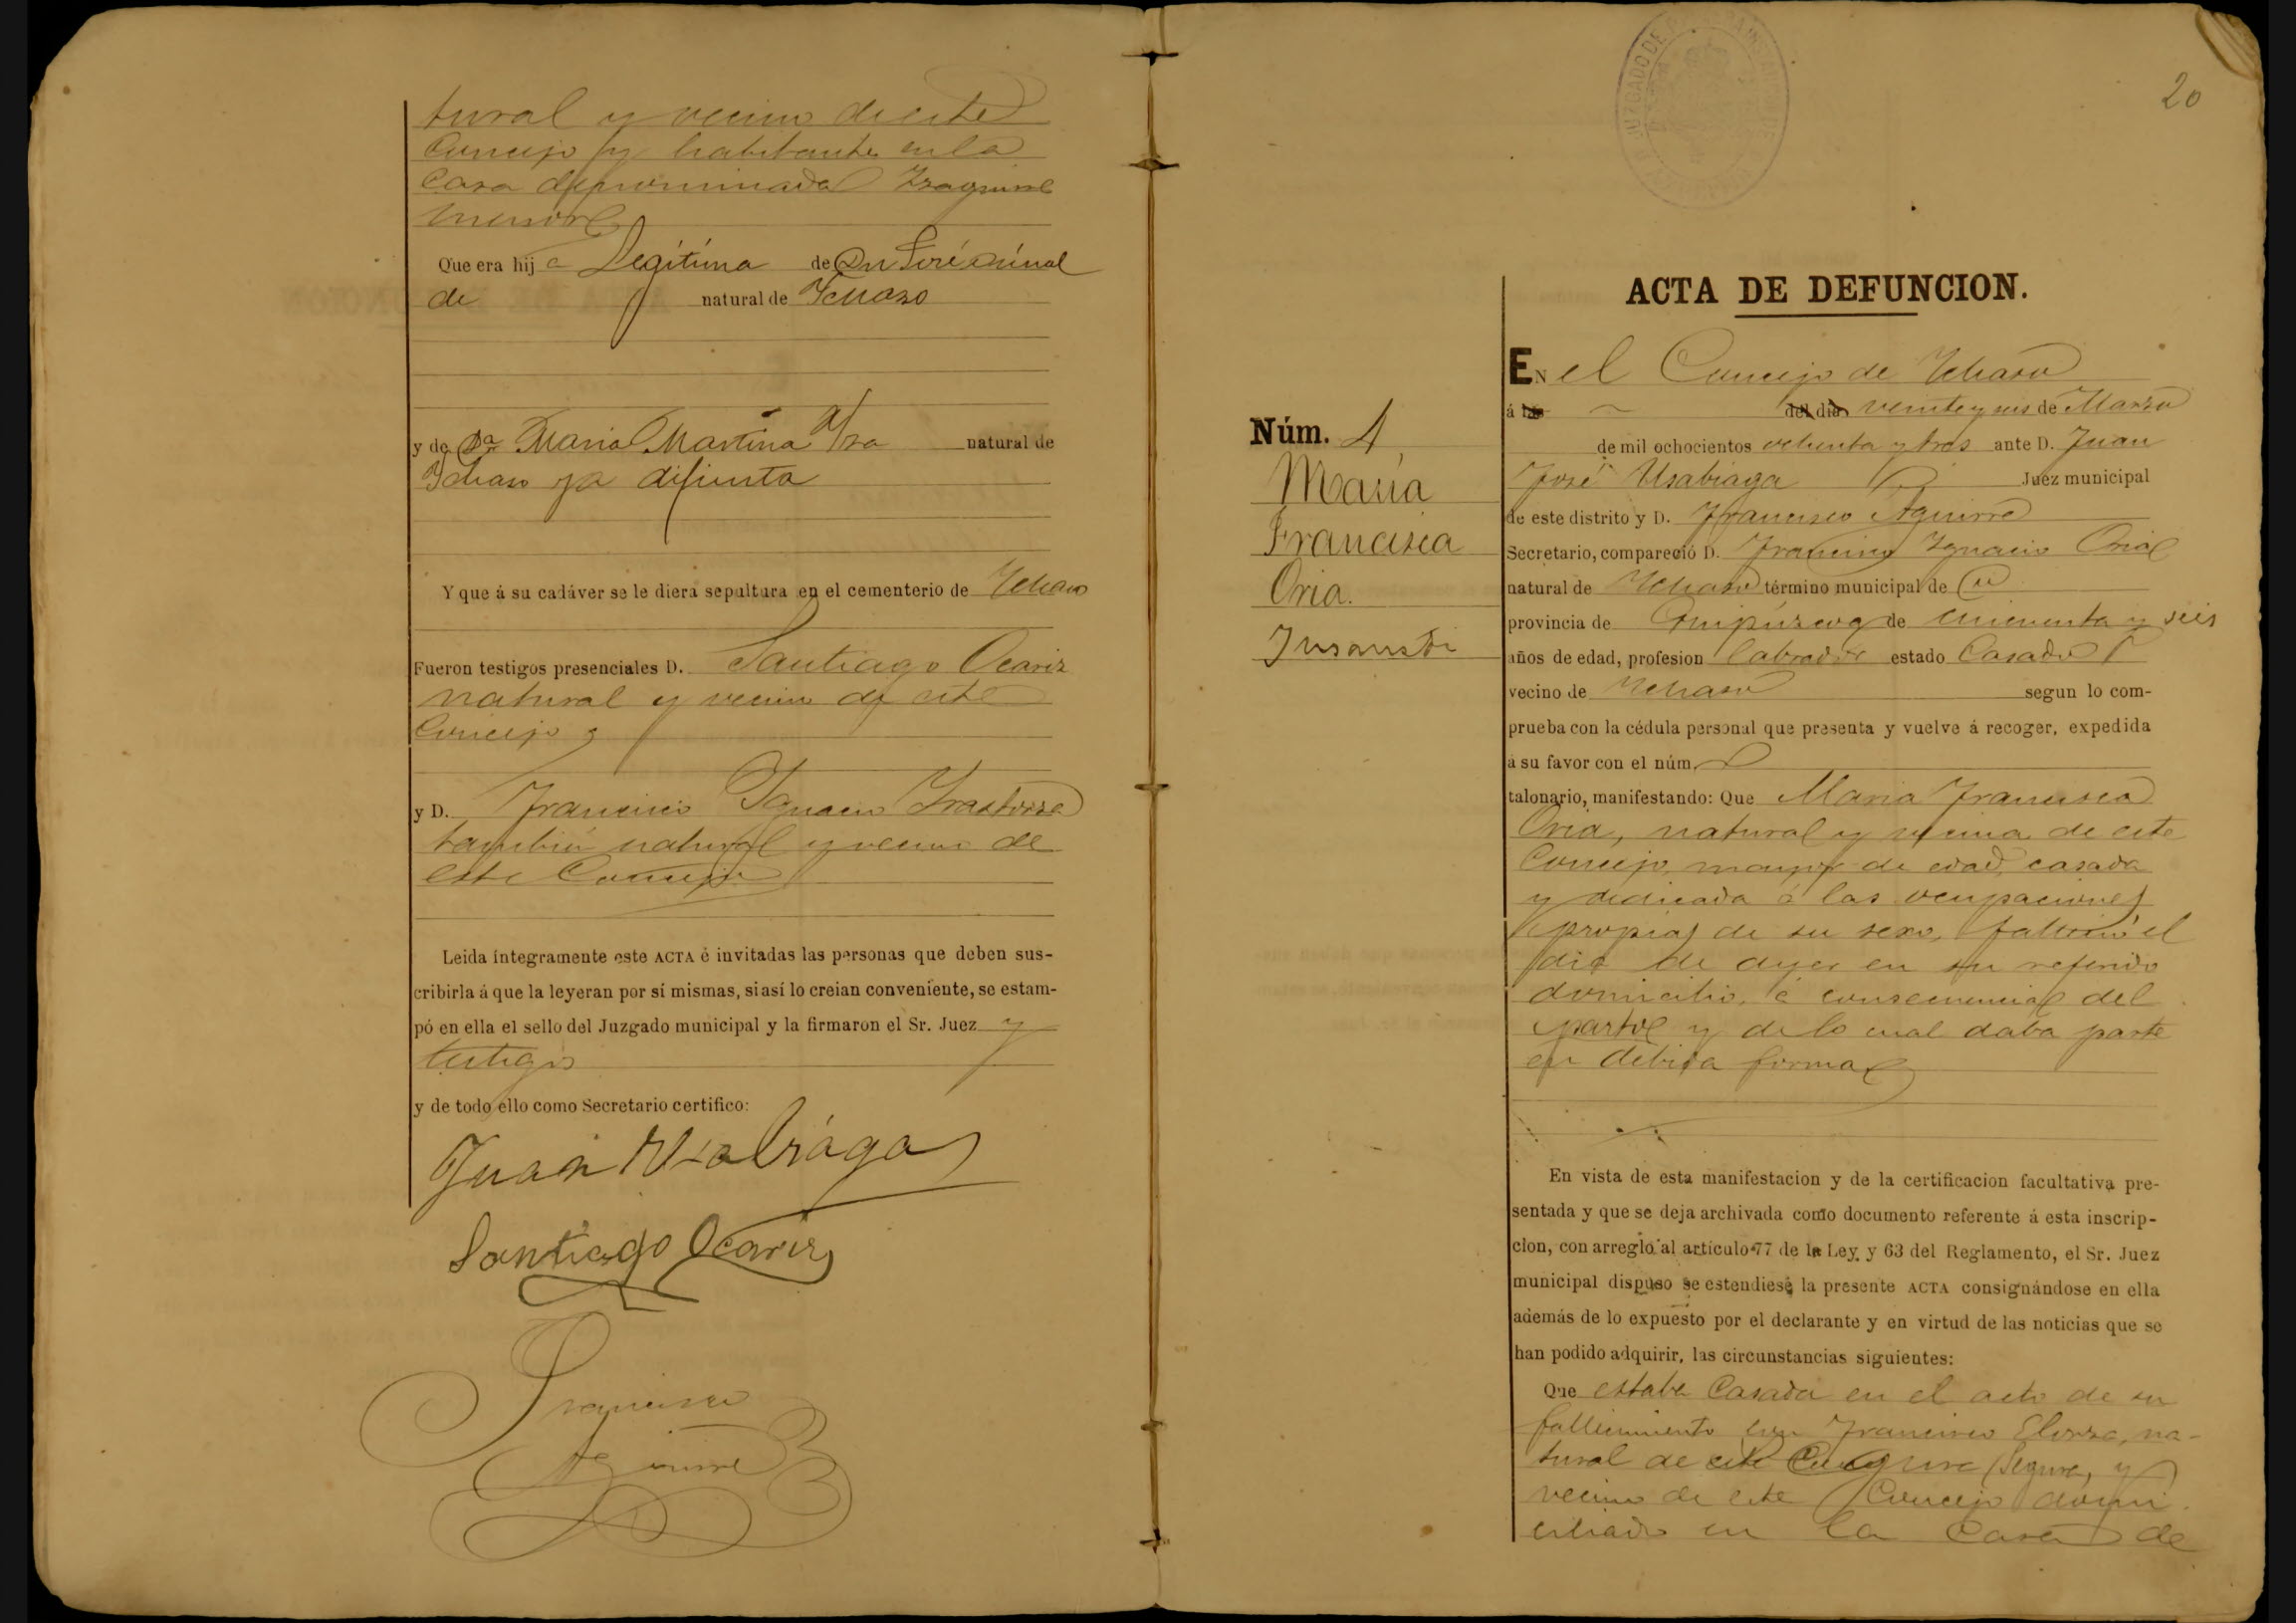 tural y vecino de este
Concejo y habitante en la
casa denominada Yraguirre
menor
Que era hija Legítima de Dn José
de natural de Ychaso
y de Da Maria Martina natural de
Ychaso ya difunta
Y que á su cadáver se le diera sepultura en el cementerio de Ychaso
Fueron testigos presenciales D. Santiago Ocariz
natural y vecino de este
Concejo
y D. Francisco Ygnacio Yrastorza
tambien natural y vecino de
este Concejo
Leida íntegramente este ACTA é invitadas las personas que deben sus-
cribirla á que la leyeran por sí mismas, si así lo creian conveniente, se estam-
pó en ella el sello del Juzgado municipal y la firmaron el Sr. Juez y
testigos
y de todo ello como Secretario certifico:
Juan Usabiaga
Santiago Ocariz
Francisco
Aguirre
20
JUZGADO DE
ACTA DE DEFUNCION.
Núm. 4
María
Francisca
Oria.
Ynsausti
EN el Concejo de Ychaso
á las del dia veinte y seis de Marzo
de mil ochocientos ochenta y tres ante D. Juan
José Usabiaga Juez municipal
de este distrito y D. Francisco Aguirre
Secretario, compareció D. Francisco Ygnacio Oria
natural de Ychaso término municipal de id
provincia de Guipúzcoa de cincuenta y seis
años de edad, profesion labrador estado Casado
vecino de Ychaso segun lo com-
prueba con la cédula personal que presenta y vuelve á recoger, expedida
á su favor con el núm.
talonario, manifestando: Que Maria Francisca
Oria, natural y vecina de este
Concejo, mayor de edad, casada
y dedicada á las ocupaciones
propias de su sexo, falleció el
dia de ayer en su referido
domicilio, á consecuencia del
parto y de lo cual daba parte
en debida forma
En vista de esta manifestacion y de la certificacion facultativa pre-
sentada y que se deja archivada como documento referente á esta inscrip-
cion, con arreglo al artículo 77 de la Ley y 63 del Reglamento, el Sr. Juez
municipal dispuso se estendiese la presente ACTA consignándose en ella
además de lo expuesto por el declarante y en virtud de las noticias que se
han podido adquirir, las circunstancias siguientes:
Que estaba Casada en el acto de su
fallecimiento con Francisco Elorza, na-
tural de este (Segura, y
vecino de este Concejo domi
ciliado en la Casa de